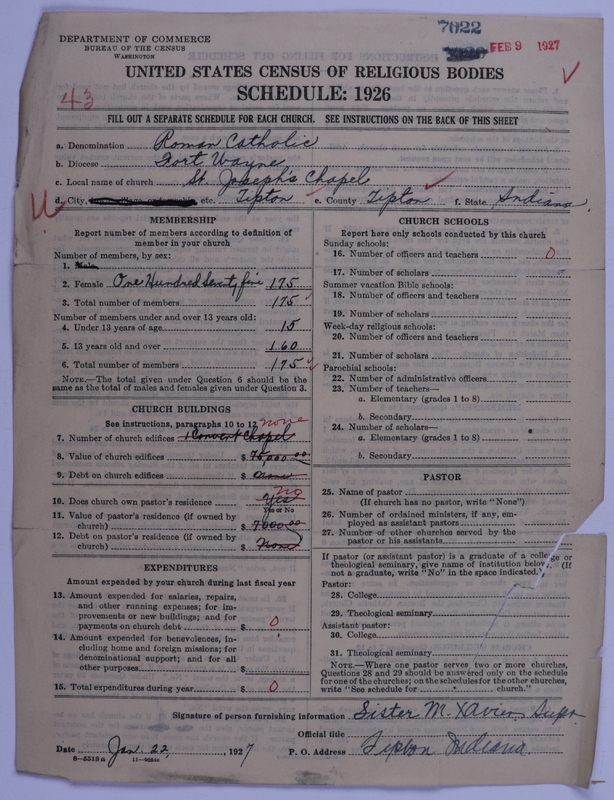 7022
DEPARTMENT OF COMMERCE
BUREAU OF THE CENSUS
WASHINGTON
FEB 9 1927
UNITED STATES CENSUS OF RELIGIOUS BODIES
SCHEDULE: 1926
43
FILL OUT A SEPARATE SCHEDULE FOR EACH CHURCH. SEE INSTRUCTIONS ON THE BACK OF THIS SHEET
a. Denomination Roman Catholic
b. Diocese Fort Wayne
c. Local name of church St. Joseph's Chapel
d. City, etc. Tipton e. County Tipton f. State Indiana
MEMBERSHIP
Report number of members according to definition of
member in your church
Number of members, by sex:
1. Male
2. Female One Hundred Seventy five 175
3. Total number of members 175
Number of members under and over 13 years old:
4. Under 13 years of age 15
5. 13 years old and over 160
6. Total number of members 175
NOTE.—The total given under Question 6 should be the
same as the total of males and females given under Question 3.
CHURCH BUILDINGS
See instructions, paragraphs 10 to 12
none
7. Number of church edifices 1 Convent Chapel
8. Value of church edifices $ 75,000.00
9. Debt on church edifices $ None
no
10. Does church own pastor's residence Yes
Yes or No
11. Value of pastor's residence (if owned by
church) $ 7000.00
12. Debt on pastor's residence (if owned by
church) $ None
EXPENDITURES
Amount expended by your church during last fiscal year
13. Amount expended for salaries, repairs,
and other running expenses; for im-
provements or new buildings; and for
payments on church debt $ 0
14. Amount expended for benevolences, in-
cluding home and foreign missions; for
denominational support; and for all
other purposes $
15. Total expenditures during year $ 0
CHURCH SCHOOLS
Report here only schools conducted by this church
Sunday schools:
16. Number of officers and teachers 0
17. Number of scholars
Summer vacation Bible schools:
18. Number of officers and teachers
19. Number of scholars
Week-day religious schools:
20. Number of officers and teachers
21. Number of scholars
Parochial schools:
22. Number of administrative officers
23. Number of teachers—
a. Elementary (grades 1 to 8)
b. Secondary
24. Number of scholars—
a. Elementary (grades 1 to 8)
b. Secondary
PASTOR
25. Name of pastor
(If church has no pastor, write "None")
26. Number of ordained ministers, if any, em-
ployed as assistant pastors
27. Number of other churches served by the
pastor or his assistants
If pastor (or assistant pastor) is a graduate of a college or
theological seminary, give name of institution below. (If
not a graduate, write "No" in the space indicated.)
Pastor:
28. College
29. Theological seminary
Assistant pastor:
30. College
31. Theological seminary
NOTE.—Where one pastor serves two or more churches,
Questions 28 and 29 should be answered only on the schedule
for one of the churches; on the schedules for the other churches,
write "See schedule for church."
Signature of person furnishing information Sister M. Xavier, Supr.
Official title
Date Jan. 22, 1927 P. O. Address Tipton Indiana.